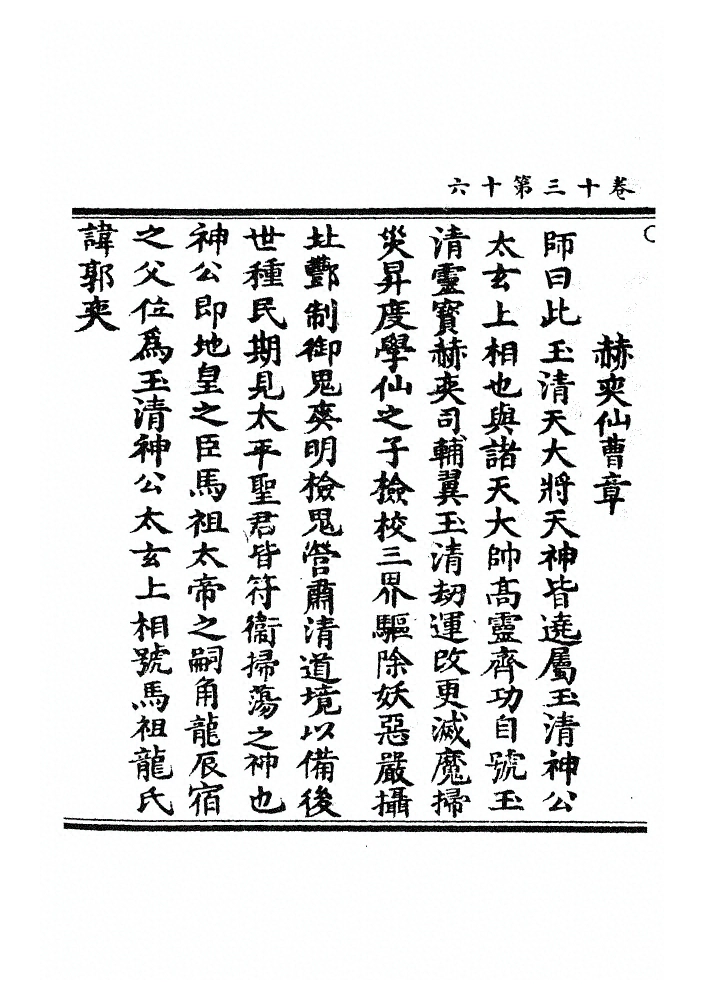 卷十三第十六
赫奕仙曹章
師曰此玉清天大將天神皆遶屬玉清神公
太玄上相也與諸天大帥高靈齊功自號玉
清靈寶赫奕司輔翼玉清劫運改更滅魔掃
災昇度學仙之子檢校三界驅除妖惡嚴攝
北酆制御鬼奕明檢鬼營肅清道境以備後
世種民期見太平聖君皆符衞掃蕩之神也
神公即地皇之臣馬祖太帝之嗣角龍辰宿
之父位爲玉清神公太玄上相號馬祖龍氏
諱郭奕